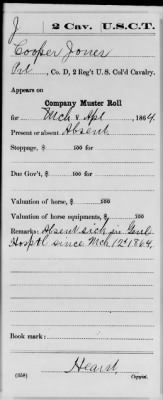 J 2 Cav. U.S.C.T.
Cooper Jones
Pvt, Co. D, 2 Reg't U. S. Col'd Cavalry.
Appears on
Company Muster Roll
for Mch & Apl, 1864
Present or absent Absent
Stoppage, $ 100 for
Due Gov't, $ 100 for
Valuation of horse, $ 100
Valuation of horse equipments, $ 100
Remarks: Absent sick in Genl
Hosptl since Mch 12th 1864.
Book mark:
Hearst
(358) Copyist.